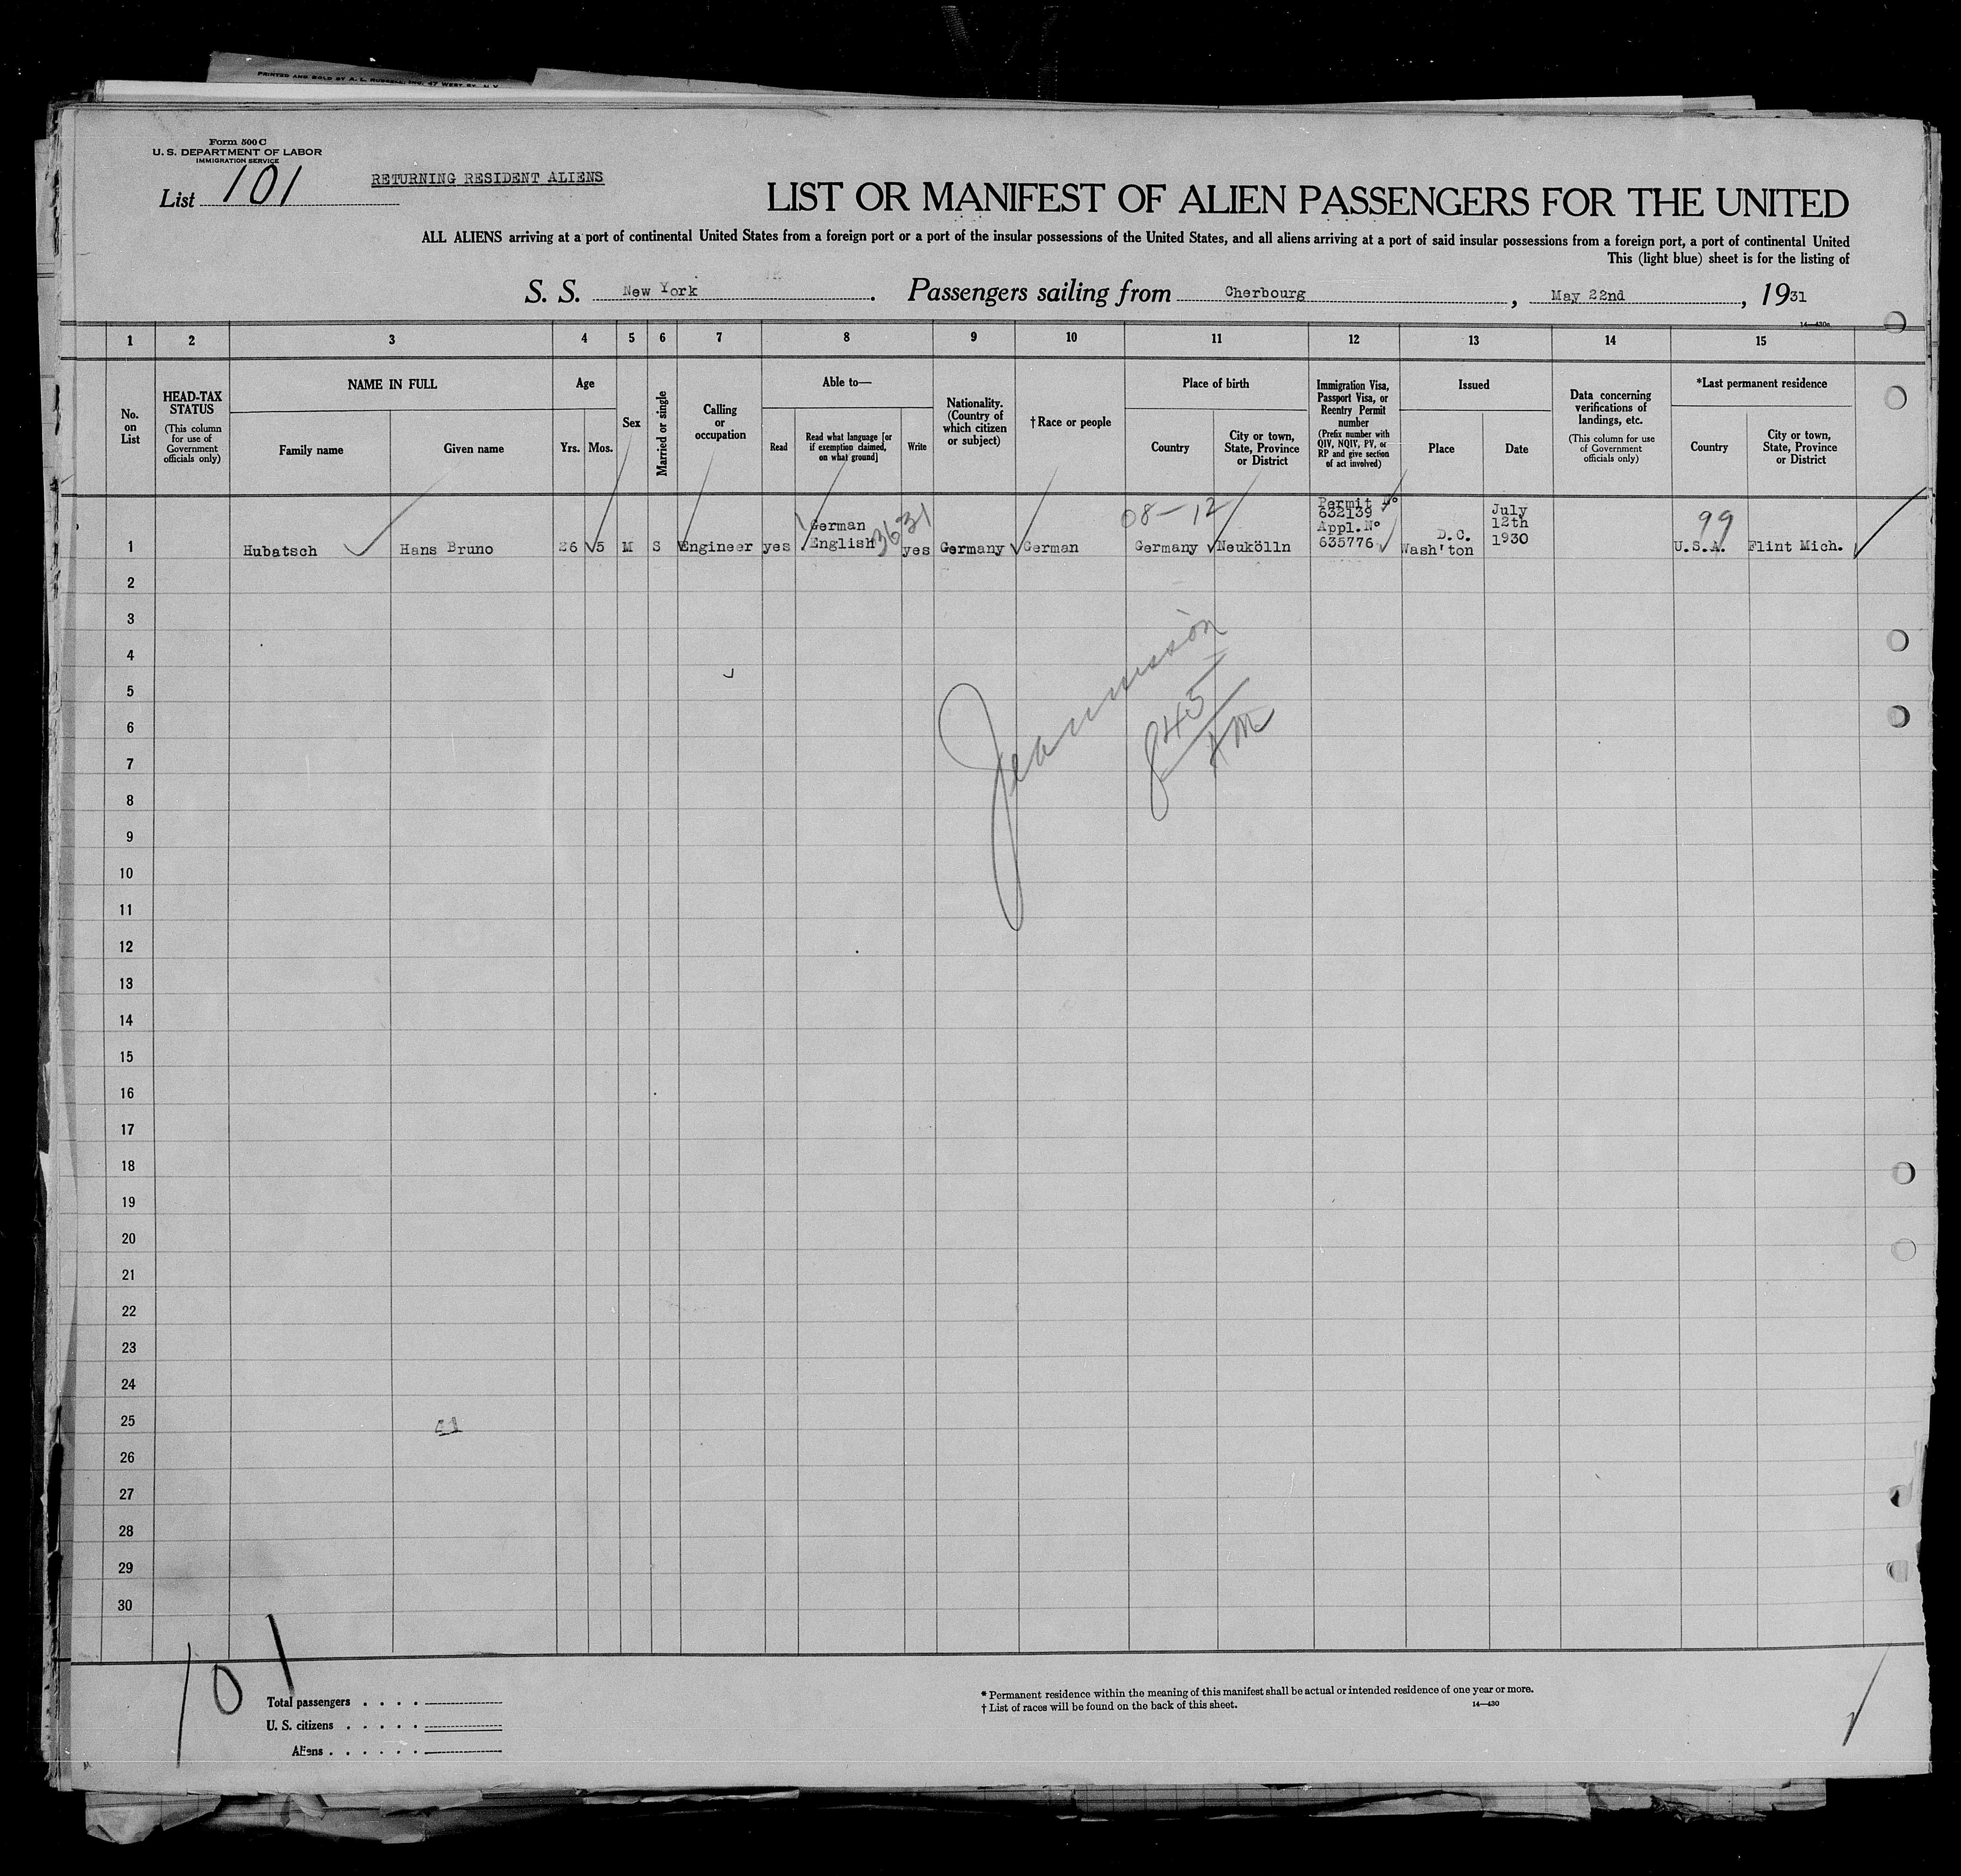 PRINTED AND SOLD BY A. L. RUSSELL, INC. 47 WEST ST. N.Y.
Form 500 C
U. S. DEPARTMENT OF LABOR
IMMIGRATION SERVICE
List 101
RETURNING RESIDENT ALIENS
LIST OR MANIFEST OF ALIEN PASSENGERS FOR THE UNITED
ALL ALIENS arriving at a port of continental United States from a foreign port or a port of the insular possessions of the United States, and all aliens arriving at a port of said insular possessions from a foreign port, a port of continental United
This (light blue) sheet is for the listing of
S. S. New York . Passengers sailing from Cherbourg , May 22nd , 1931
14—430c
1 2 3 4 5 6 7 8 9 10 11 12 13 14 15
No. on List
HEAD-TAX STATUS
(This column for use of Government officials only)
NAME IN FULL
Family name Given name
Age
Yrs. Mos.
Sex
Married or single
Calling or occupation
Able to—
Read
Read what language [or if exemption claimed, on what ground]
Write
Nationality. (Country of which citizen or subject)
†Race or people
Place of birth
Country
City or town, State, Province or District
Immigration Visa, Passport Visa, or Reentry Permit number
(Prefix number with QIV, NQIV, PV, or RP and give section of act involved)
Issued
Place Date
Data concerning verifications of landings, etc.
(This column for use of Government officials only)
*Last permanent residence
Country
City or town, State, Province or District
1 Hubatsch Hans Bruno 26 5 M S Engineer yes German English 3631 yes Germany German 08-12 Germany Neukölln Permit Nº 632139 Appl. Nº 635776 D.C. Wash'ton July 12th 1930 99 U.S.A. Flint Mich.
2
3
4
5
6
7
8
9
10
11
12
13
14
15
16
17
18
19
20
21
22
23
24
25
26
27
28
29
30
845
AM
101
Total passengers . . . .
U. S. citizens . . . . .
Aliens . . . . . .
* Permanent residence within the meaning of this manifest shall be actual or intended residence of one year or more.
† List of races will be found on the back of this sheet.
14—430